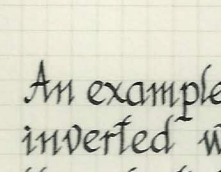 An example
inverted